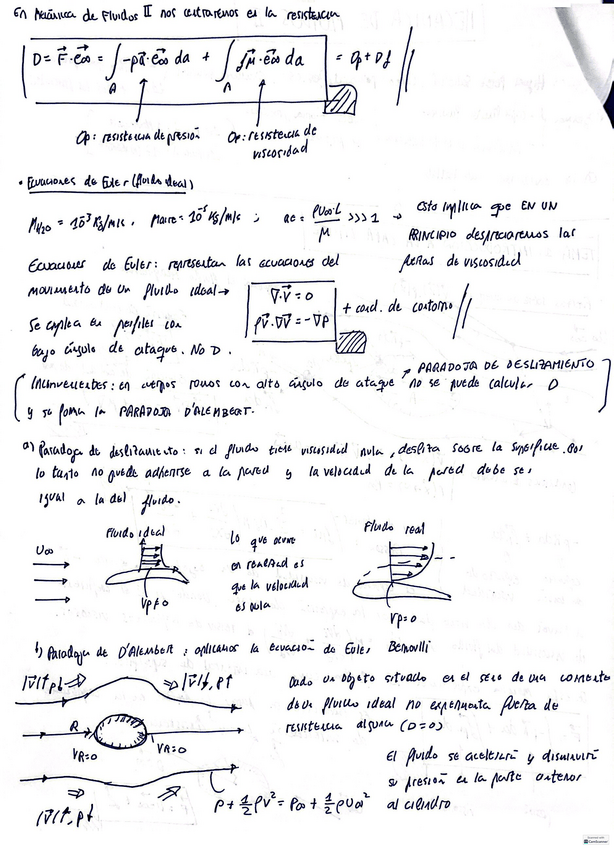 En Mecánica de Fluidos II nos centraremos en la resistencia
D = F⃗·e⃗∞ = ∫_A -pn⃗·e⃗∞ da + ∫_A f⃗μ·e⃗∞ da = Dp + Df //
Dp: resistencia de presión
Dp: resistencia de viscosidad
• Ecuaciones de Euler (fluido ideal)
μH2O = 10^-3 kg/m/s, μaire = 10^-5 kg/m/s ; Re = ρU∞·L / μ >>> 1 → Esto implica que EN UN
PRINCIPIO despreciaremos las
fuerzas de viscosidad
Ecuaciones de Euler: representan las ecuaciones del
movimiento de un fluido ideal →
∇·v⃗ = 0
ρv⃗·∇v⃗ = -∇p
+ cond. de contorno //
Se emplea en perfiles con
bajo ángulo de ataque. No D.
Inconvenientes: en cuerpos romos con alto ángulo de ataque no se puede calcular D
PARADOJA DE DESLIZAMIENTO
y se forma la PARADOJA D'ALEMBERT.
a) Paradoja de deslizamiento: si el fluido tiene viscosidad nula, desliza sobre la superficie. Por
lo tanto no puede adherirse a la pared y la velocidad de la pared debe ser
igual a la del fluido.
Fluido ideal
U∞
Vp≠0
lo que ocurre
en realidad es
que la velocidad
es nula
Fluido real
Vp=0
b) Paradoja de D'Alembert: aplicamos la ecuación de Euler Bernoulli
|v⃗|↑ p↓ ⇒
⇒ |v⃗|↓, p↑
R
VR=0
VR=0
|v⃗|↑, p↓
p + ½ρv² = p∞ + ½ρU∞²
Dado un objeto situado en el seno de una corriente
de un fluido ideal no experimenta fuerza de
resistencia alguna (D=0)
El fluido se acelerará y disminuirá
su presión en la parte anterior
al cilindro
CamScanner